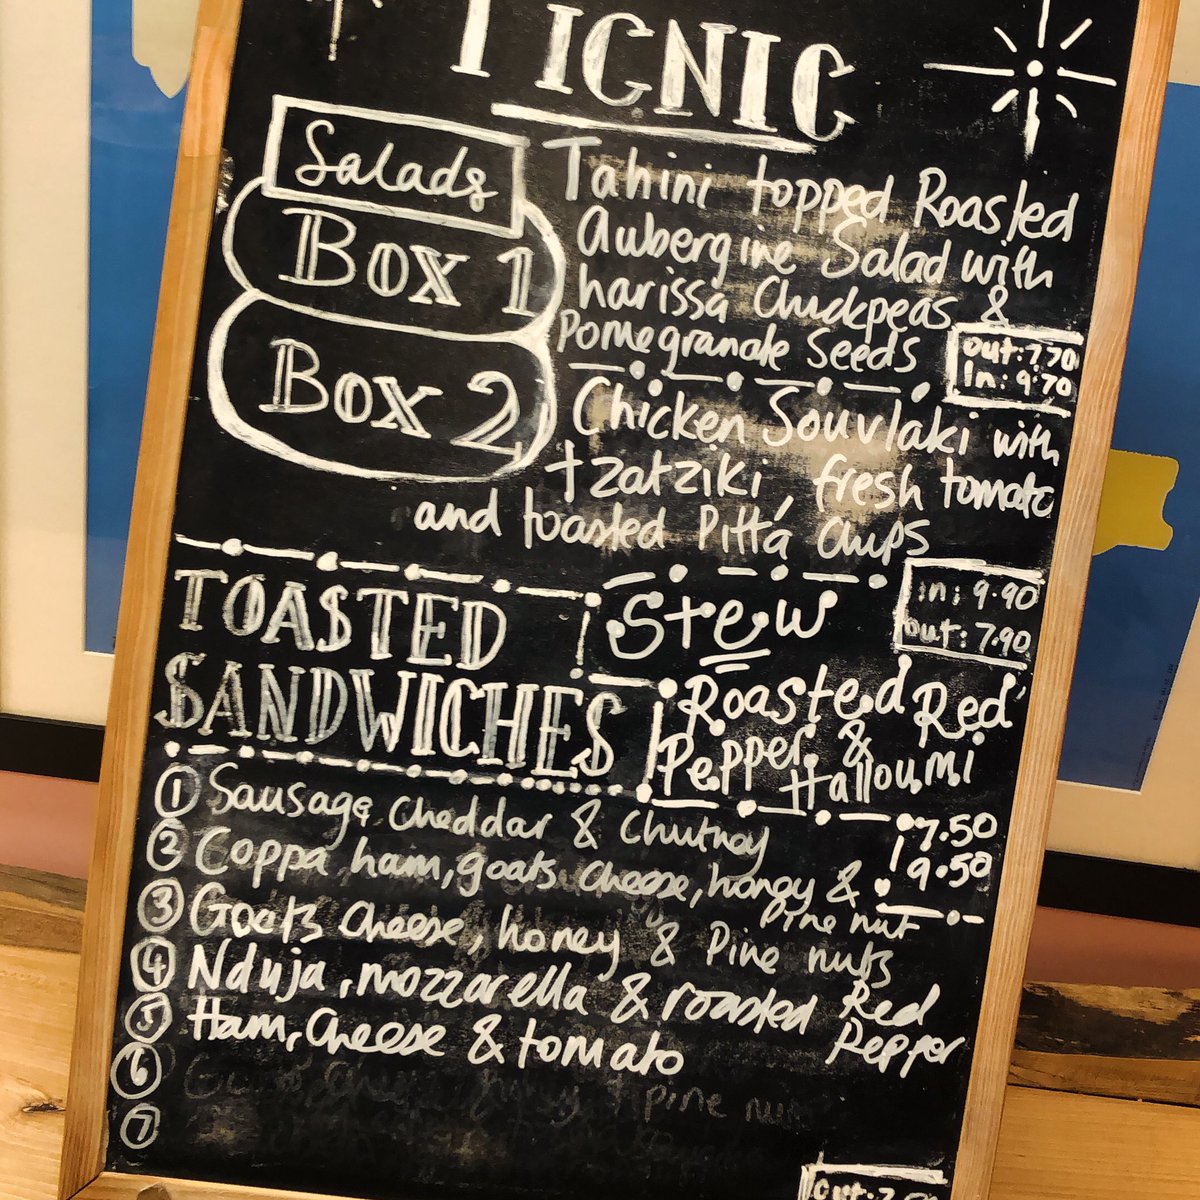 PICNIC
Salads
Box 1
Box 2
Tahini topped Roasted
Aubergine Salad with
harissa Chickpeas &
Pomegranate Seeds
out: 7.70
In: 9.70
Chicken Souvlaki with
tzatziki, fresh tomato
and toasted Pitta Chips
in: 9.90
out: 7.90
TOASTED
SANDWICHES
Stew
Roasted Red
Pepper &
Halloumi
7.50
9.50
1 Sausage, Cheddar & Chutney
2 Coppa ham, goats cheese, honey &
Pine nut
3 Goats Cheese, honey & Pine nuts
4 Nduja, mozzarella & roasted Red
Pepper
5 Ham, Cheese & tomato
6 pine
7
out: